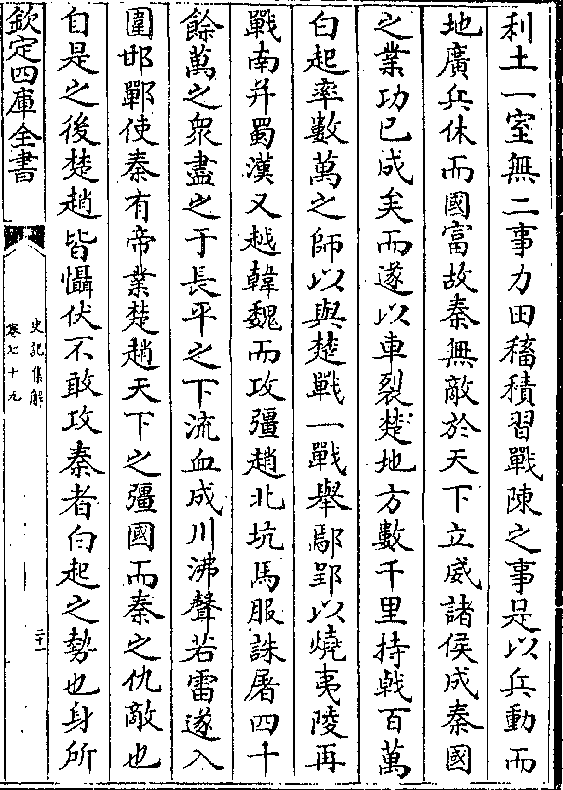 利土一室無二事力田稸積習戰陳之事是以兵動而
地廣兵休而國富故秦無敵於天下立威諸侯成秦國
之業功已成矣而遂以車裂楚地方數千里持戟百萬
白起率數萬之師以與楚戰一戰舉鄢郢以燒夷陵再
戰南并蜀漢又越韓魏而攻彊趙北坑馬服誅屠四十
餘萬之衆盡之于長平之下流血成川沸聲若雷遂入
圍邯鄲使秦有帝業楚趙天下之彊國而秦之仇敵也
自是之後楚趙皆懾伏不敢攻秦者白起之勢也身所
欽定四庫全書
史記集解
卷七十九
二十一